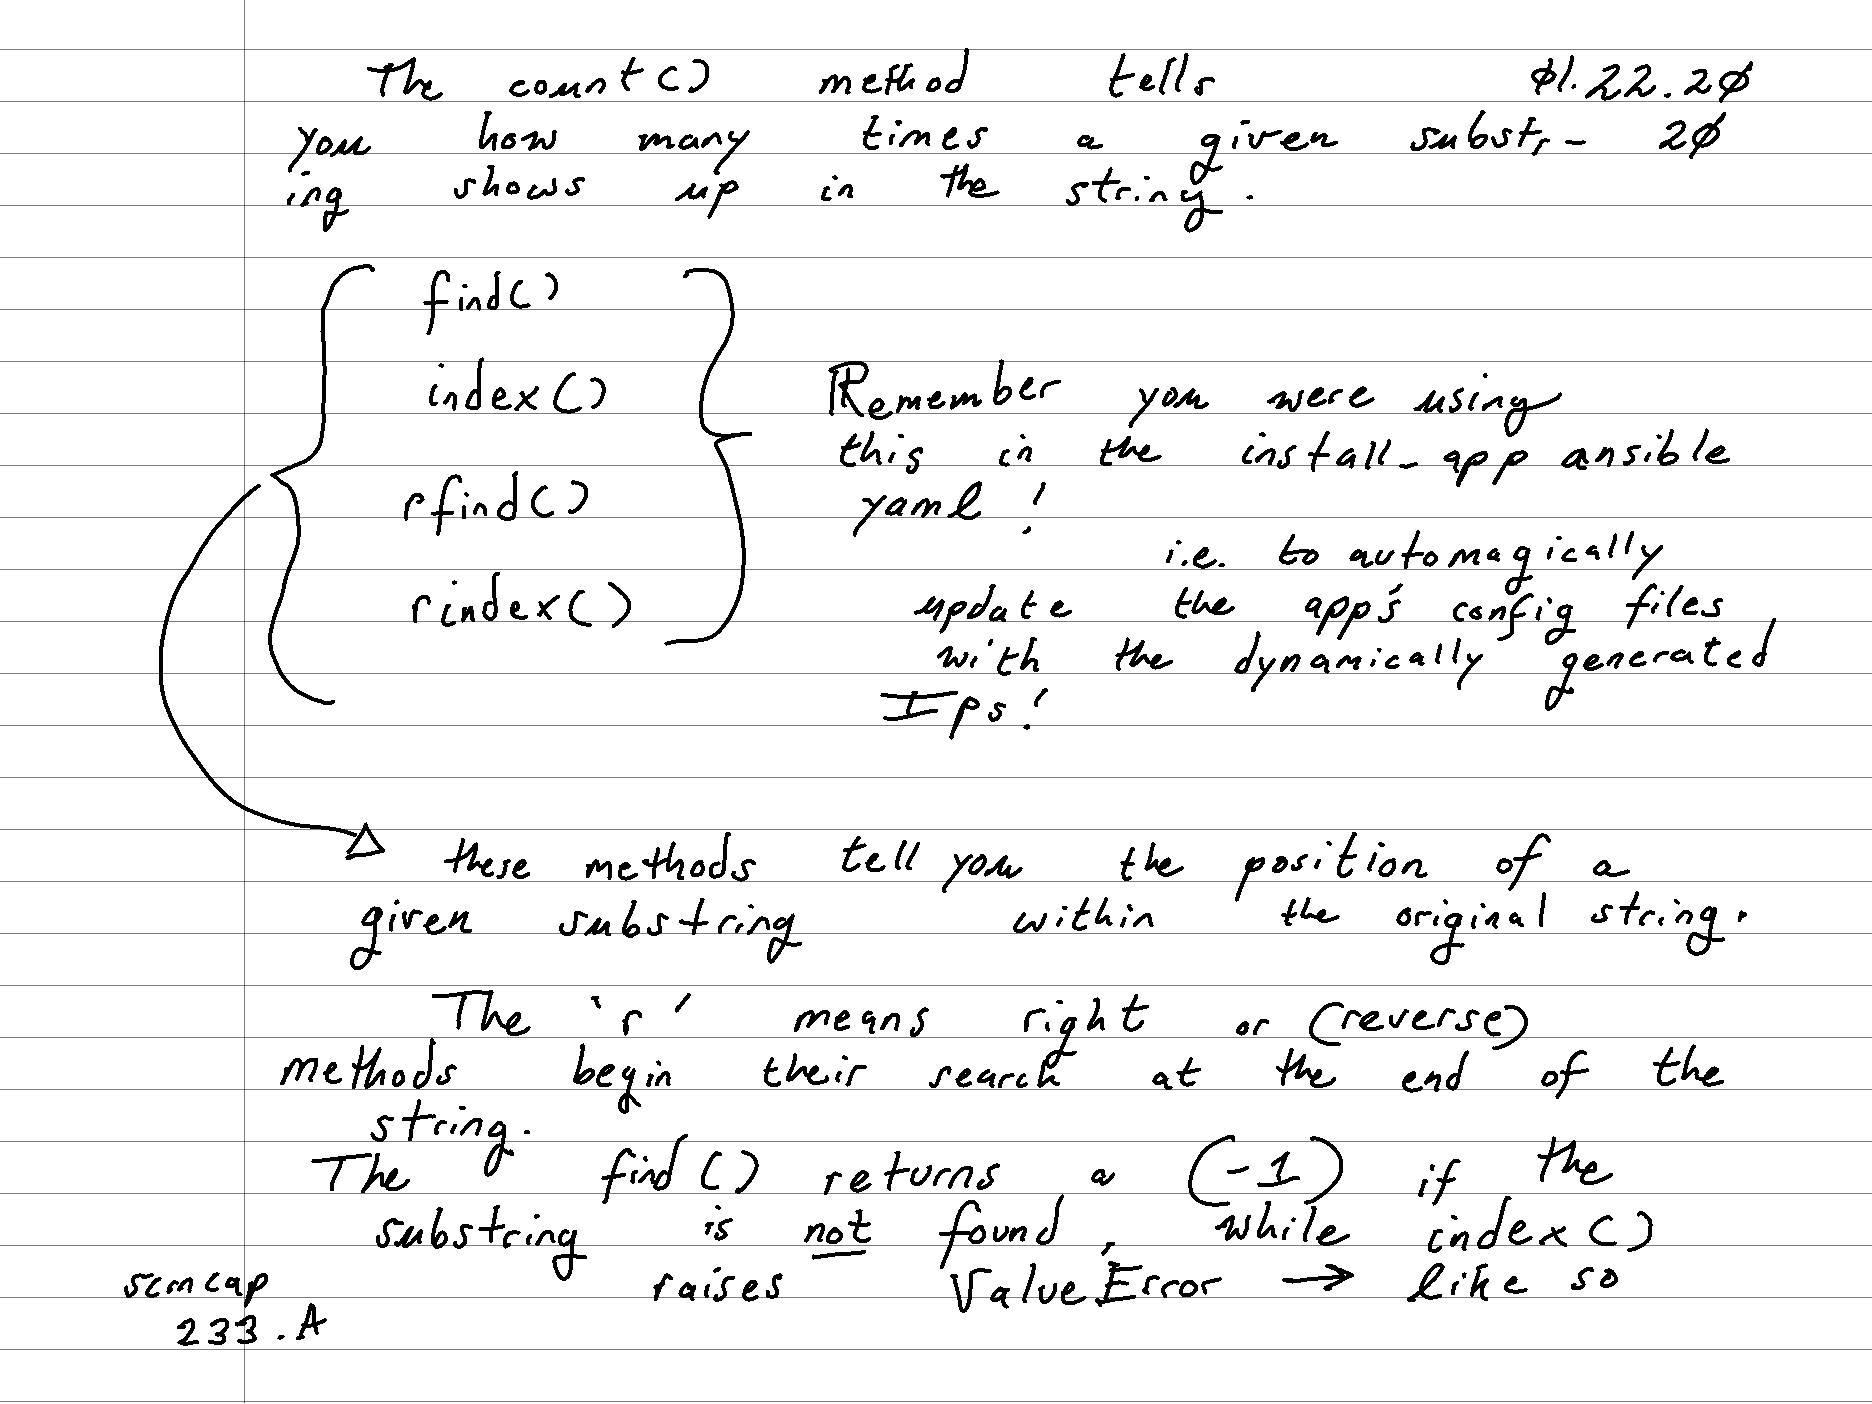 The count() method tells 01.22.20
you how many times a given substr- 20
ing shows up in the string.
find()
index()
rfind()
rindex()
Remember you were using
this in the install_app ansible
yaml!
i.e. to automagically
update the app's config files
with the dynamically generated
Ips!
these methods tell you the position of a
given substring within the original string.
The 'r' means right or (reverse)
methods begin their search at the end of the
string.
The find() returns a (-1) if the
substring is not found, while index()
raises ValueError → like so
scncap
233.A